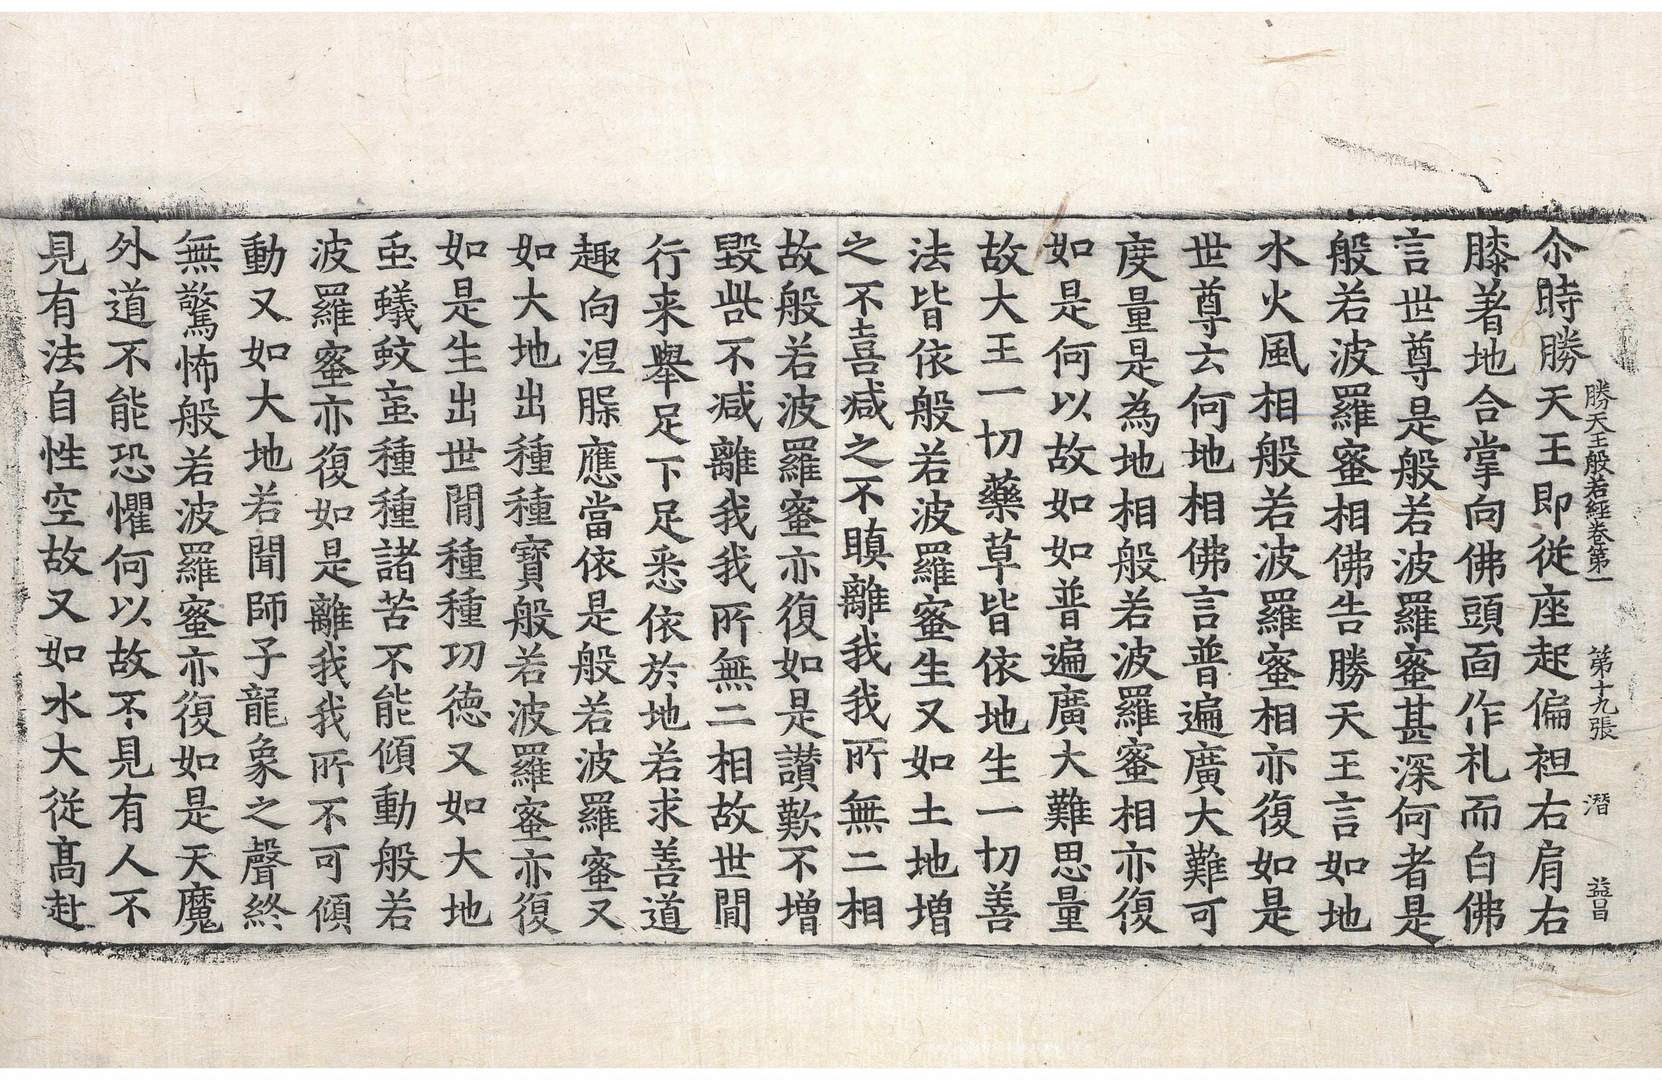 勝天王般若經卷第一　第十九張　潛　益昌
尒時勝天王即從座起偏袒右肩右
膝著地合掌向佛頭面作礼而白佛
言世尊是般若波羅蜜甚深何者是
般若波羅蜜相佛告勝天王言如地
水火風相般若波羅蜜相亦復如是
世尊云何地相佛言普遍廣大難可
度量是為地相般若波羅蜜相亦復
如是何以故如如普遍廣大難思量
故大王一切藥草皆依地生一切善
法皆依般若波羅蜜生又如土地增
之不喜減之不瞋離我我所無二相
故般若波羅蜜亦復如是讃歎不增
毀呰不減離我我所無二相故世間
行来舉足下足悉依於地若求善道
趣向涅槃應當依是般若波羅蜜又
如大地出種種寶般若波羅蜜亦復
如是生出世間種種功德又如大地
䖝蟻蚊䖟種種諸苦不能傾動般若
波羅蜜亦復如是離我我所不可傾
動又如大地若聞師子龍象之聲終
無驚怖般若波羅蜜亦復如是天魔
外道不能恐懼何以故不見有人不
見有法自性空故又如水大從髙赴